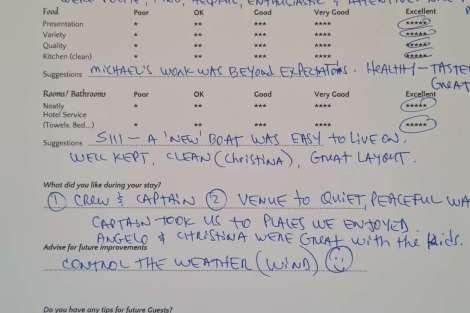 WERE POLITE, KIND, HELPFUL, ENTHUSIASTIC & ATTENTIVE
Food Poor OK Good Very Good Excellent
Presentation * ** *** **** *****
Variety * ** *** **** *****
Quality * ** *** **** *****
Kitchen (clean) * ** *** **** *****
Suggestions MICHAEL'S WORK WAS BEYOND EXPECTATIONS. HEALTHY - TASTE
GREAT
Rooms/ Bathrooms Poor OK Good Very Good Excellent
Neatly * ** *** **** *****
Hotel Service
(Towels, Bed...) * ** *** **** *****
Suggestions - A 'NEW' BOAT WAS EASY TO LIVE ON.
WELL KEPT, CLEAN (Christina), GREAT LAYOUT.
What did you like during your stay?
① CREW & CAPTAIN ② VENUE TO QUIET, PEACEFUL WA
CAPTAIN TOOK US TO PLACES WE ENJOYED.
ANGELO & CHRISTINA WERE GREAT with the kids.
Advise for future improvements
CONTROL THE WEATHER (WIND)
Do you have any tips for future Guests?